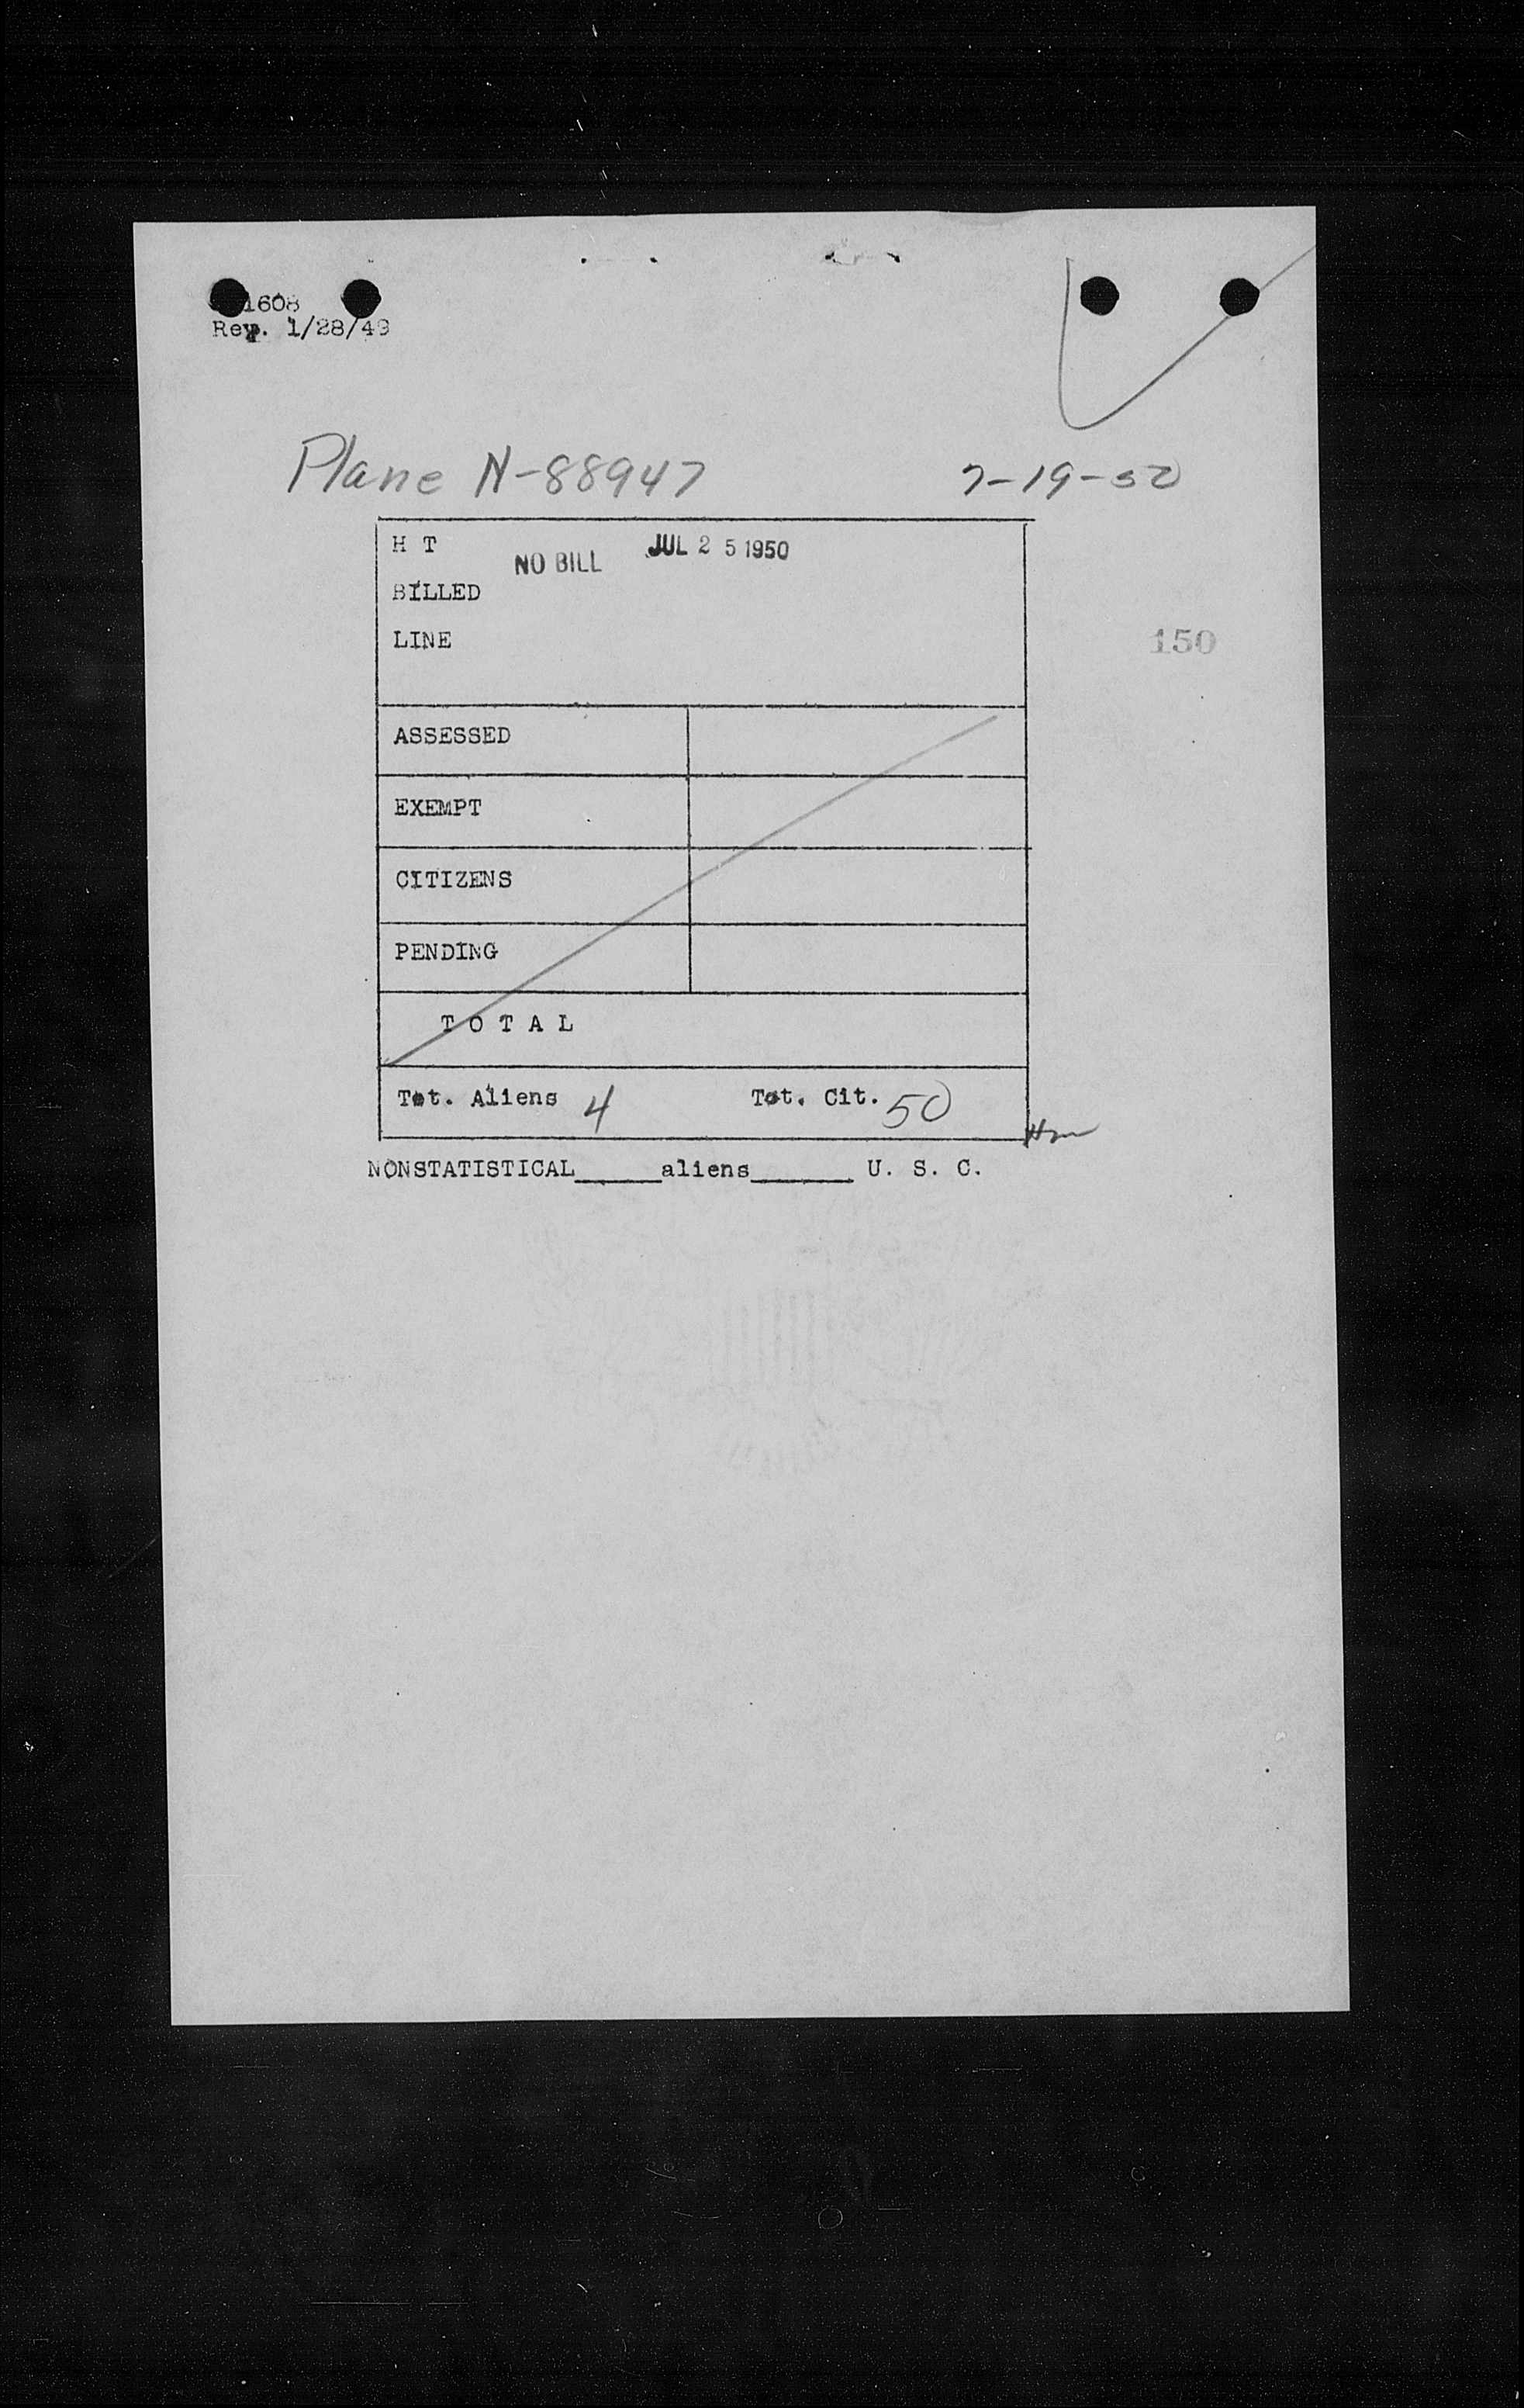 1608
Rev. 1/28/49
Plane N-88947 7-19-50
H T NO BILL JUL 25 1950
BILLED
LINE
150
ASSESSED
EXEMPT
CITIZENS
PENDING
T O T A L
Tot. Aliens 4 Tot. Cit. 50
NONSTATISTICAL_____aliens______ U. S. C.